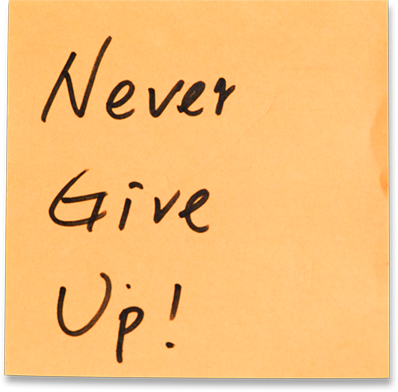 Never
Give
Up!